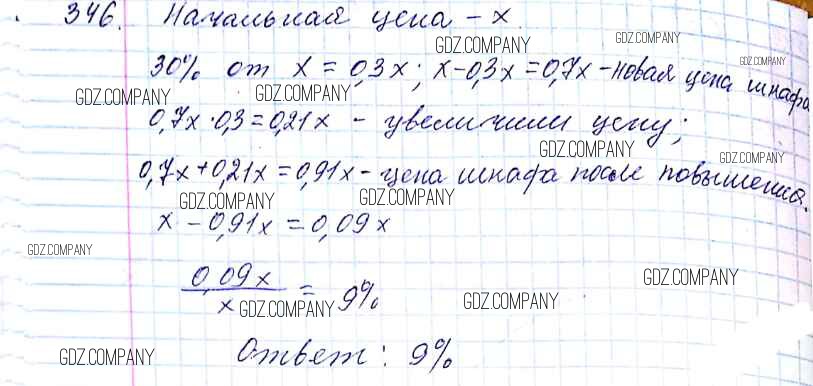 346. Начальная цена - x
GDZ.COMPANY GDZ.COMPANY
30% от x = 0,3x; x-0,3x=0,7x-новая цена шкафа
GDZ.COMPANY
GDZ.COMPANY GDZ.COMPANY
0,7x·0,3=0,21x - увеличили цену;
GDZ.COMPANY GDZ.COMPANY
0,7x+0,21x=0,91x-цена шкафа после повышения.
GDZ.COMPANY GDZ.COMPANY
x - 0,91x = 0,09x
GDZ.COMPANY
0,09x
x = 9%
GDZ.COMPANY GDZ.COMPANY GDZ.COMPANY
GDZ.COMPANY Ответ: 9%